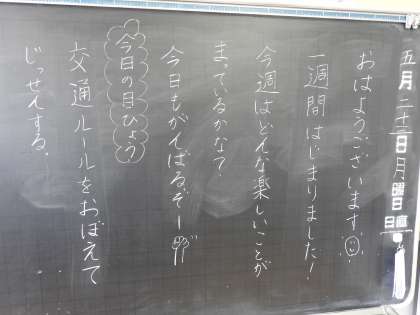 五月二十二日月曜日
日直
おはようございます。
一週間はじまりました!
今週はどんな楽しいことが
まっているかな?
今日もがんばるぞー!!!
今日の目ひょう
交通ルールをおぼえて
じっせんする。